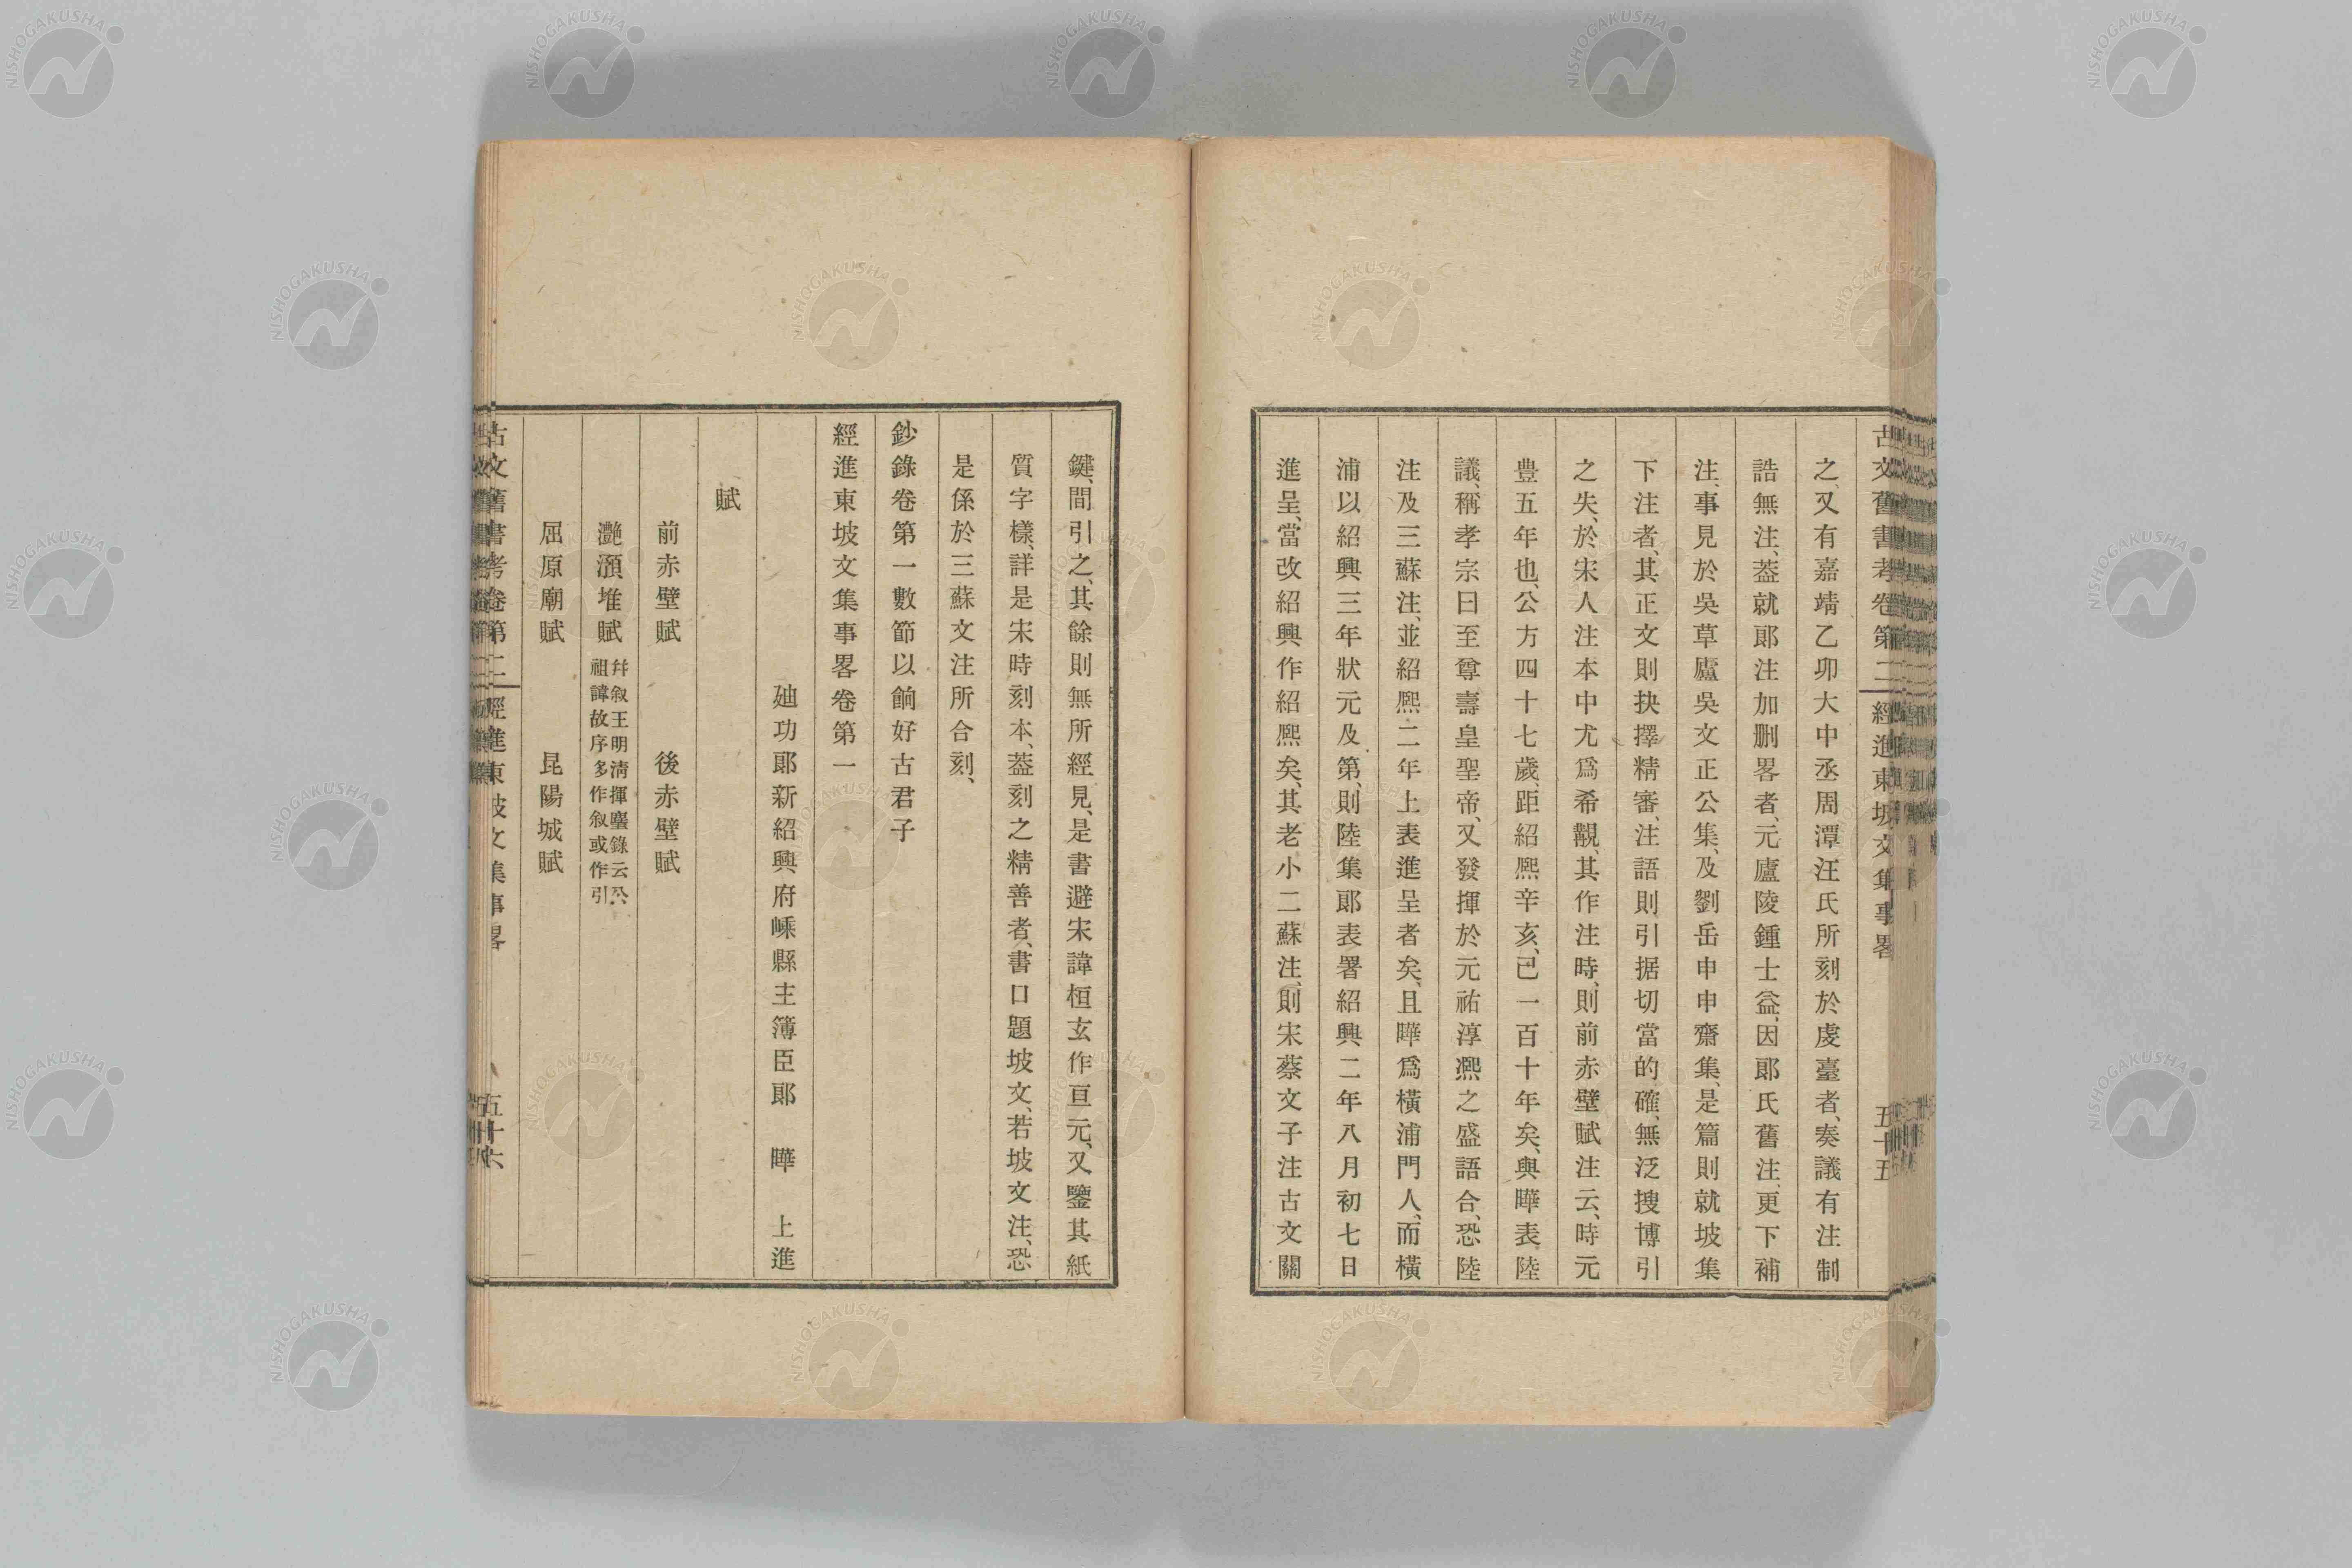 古文舊書考卷第二 經進東坡文集事畧 五十五
之、又有嘉靖乙卯大中丞周潭汪氏所刻於虔臺者、奏議有注制
誥無注、葢就郞注加删畧者、元廬陵鍾士益、因郞氏舊注、更下補
注、事見於吳草廬吳文正公集、及劉岳申申齋集、是篇則就坡集
下注者、其正文則抉擇精審、注語則引据切當的確、無泛搜博引
之失、於宋人注本中尤爲希覯、其作注時、則前赤壁賦注云、時元
豊五年也、公方四十七歲、距紹熙辛亥、已一百十年矣、與曄表陸
議、稱孝宗曰至尊壽皇聖帝、又發揮於元祐淳凞之盛語合、恐陸
注及三蘇注、並紹熙二年上表進呈者矣、且曄爲橫浦門人、而橫
浦以紹興三年狀元及第、則陸集郞表署紹興二年八月初七日
進呈、當改紹興作紹熙矣、其老小二蘇注、則宋蔡文子注古文關
鍵、間引之、其餘則無所經見、是書避宋諱桓玄作亘元、又鑒其紙
質字樣、詳是宋時刻本、葢刻之精善者、書口題坡文、若坡文注、恐
是係於三蘇文注所合刻、
鈔錄卷第一數節以餉好古君子
經進東坡文集事畧卷第一
廸功郞新紹興府嵊縣主簿臣郞 曄 上進
賦
前赤壁賦 後赤壁賦
灔澦堆賦 幷叙王明淸揮麈錄云公
祖諱故序多作叙或作引
屈原廟賦 昆陽城賦
古文舊書考卷第二 經進東坡文集事畧 五十六
NISHOGAKUSHA